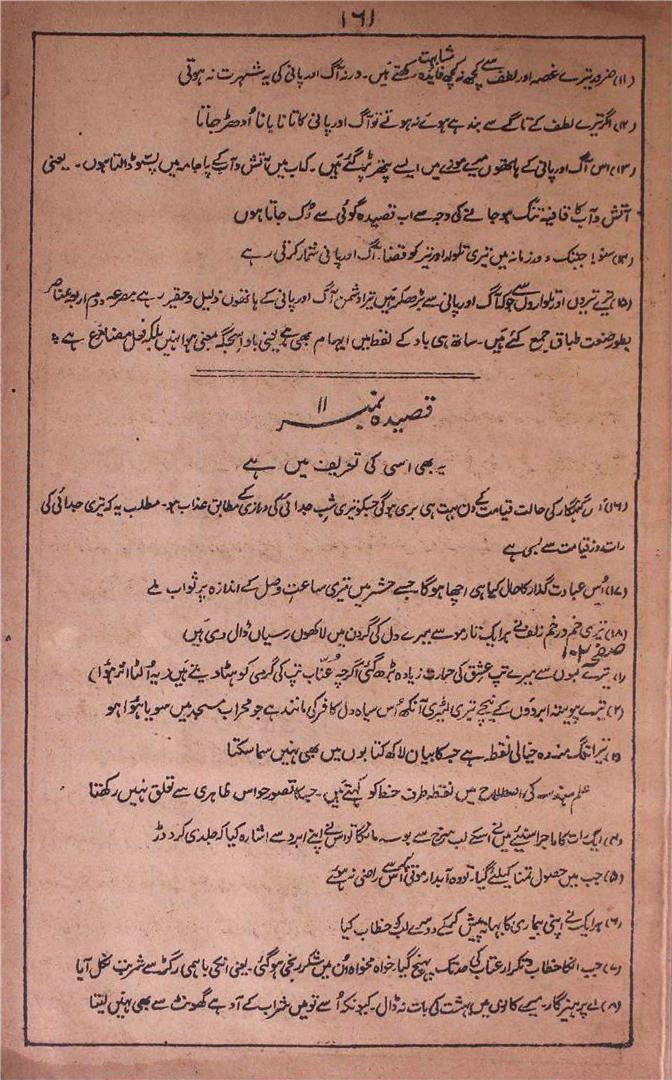 ۱۶۱
(۱۱) ضرور تیرے غصہ اور لطف سے کچھ نہ کچھ مشابہت رکھتے ہیں۔ ورنہ آگ اور پانی کی یہ شہرت نہ ہوتی
(۱۲) اگر تیرے لطف کے تاگے سے بندھے ہوئے نہ ہوتے تو آگ اور پانی کا تانا بانا اُدھڑ جاتا
(۱۳) اس آگ اور پانی کے ہاتھوں میرے موزے میں ایسے پتھر پڑ گئے ہیں۔ کہ اب میں آتش و آب کے پاجامہ میں پسّو ڈالتا ہوں۔ یعنی
آتش و آب کا قافیہ تنگ ہو جانے کی وجہ سے اب قصیدہ گوئی سے رُک جاتا ہوں
(۱۴) سنو! جبتک دور زمانہ میں تیری تلوار اور تیر کو قضا۔ آگ اور پانی شمار کرتی رہے
(۱۵) تیرے تیروں اور تلواروں سے جو کہ آگ اور پانی سے بڑھکر ہیں تیرا دشمن آگ اور پانی کے ہاتھوں ذلیل و حقیر رہے مصرعہ دوم اربعہ عناصر
بطور صنعت طباق جمع کئے ہیں۔ ساتھ ہی باد کے لفظ میں ایہام بھی ہے یعنی باد اسجگہ بمعنی ہوا نہیں بلکہ فعل مضارع ہے
قصیدہ نمبر ۱۱
یہ بھی اسی کی تعریف میں ہے
(۱۶) اُس گنہگار کی حالت قیامت کے دن بہت ہی بری ہوگی جسکو تیری شبِ جدائی کی درازی کے مطابق عذاب ہو۔ مطلب یہ کہ تیری جدائی کی
رات روز قیامت سے لمبی ہے
(۱۷) اُس عبادت گذار کا حال کیا ہی اچھا ہوگا۔ جسے حشر میں تیری ساعتِ وصل کے اندازہ پر ثواب ملے
(۱۸) تیری خم در خم زلف نے ہر ایک تار مو سے میرے دل کی گردن میں لاکھوں رسیاں ڈال دی ہیں
صفحہ ۱۰۲
(۱) تیرے لبوں سے میرے تپِ عشق کی حرارت زیادہ بڑھ گئی اگرچہ عنّاب تپ کی گرمی کو ہٹا دیتے ہیں (یہ اُلٹا اثر ہوا)
(۲) تیرے پیوستہ ابرووں کے نیچے تیری لٹیری آنکھ اُس سیاہ دل کافر کی مانند ہے جو محراب مسجد میں سویا ہوا ہو
تیرا تنگ منہ وہ خیالی نقطہ ہے جسکا بیان لاکھ کتابوں میں بھی نہیں سما سکتا
علم ہندسہ کی اصطلاح میں نقطہ طرف خط کو کہتے ہیں۔ جسکا تصور حواس ظاہری سے تعلق نہیں رکھتا
(۴) ایک رات کا ماجرا سنیئے میں نے اسکے لب سرخ سے بوسہ مانگا تو اس نے اپنے ابرو سے اشارہ کیا کہ جلدی کر دوڑ
(۵) جب میں حصول تمنا کیلئے گیا۔ تو وہ آبدار موتی اُس سے راضی نہ ہوئے
(۶) ہر ایک نے اپنی بیماری کا بہانہ پیش کر کے دوسرے لب کو خطاب کیا
(۷) جب انکا خطاب تکرار عتاب کی حد تک پہنچ گیا۔ خواہ مخواہ ان میں شکر رنجی ہوگئی۔ یعنی انکی باہمی رگڑ سے شربت نکل آیا
(۸) اے پرہیزگار۔ میرے کانوں میں بہشت کی بات نہ ڈال۔ کیونکہ اُسے تو میں شراب کے آدھے گھونٹ سے بھی نہیں لیتا